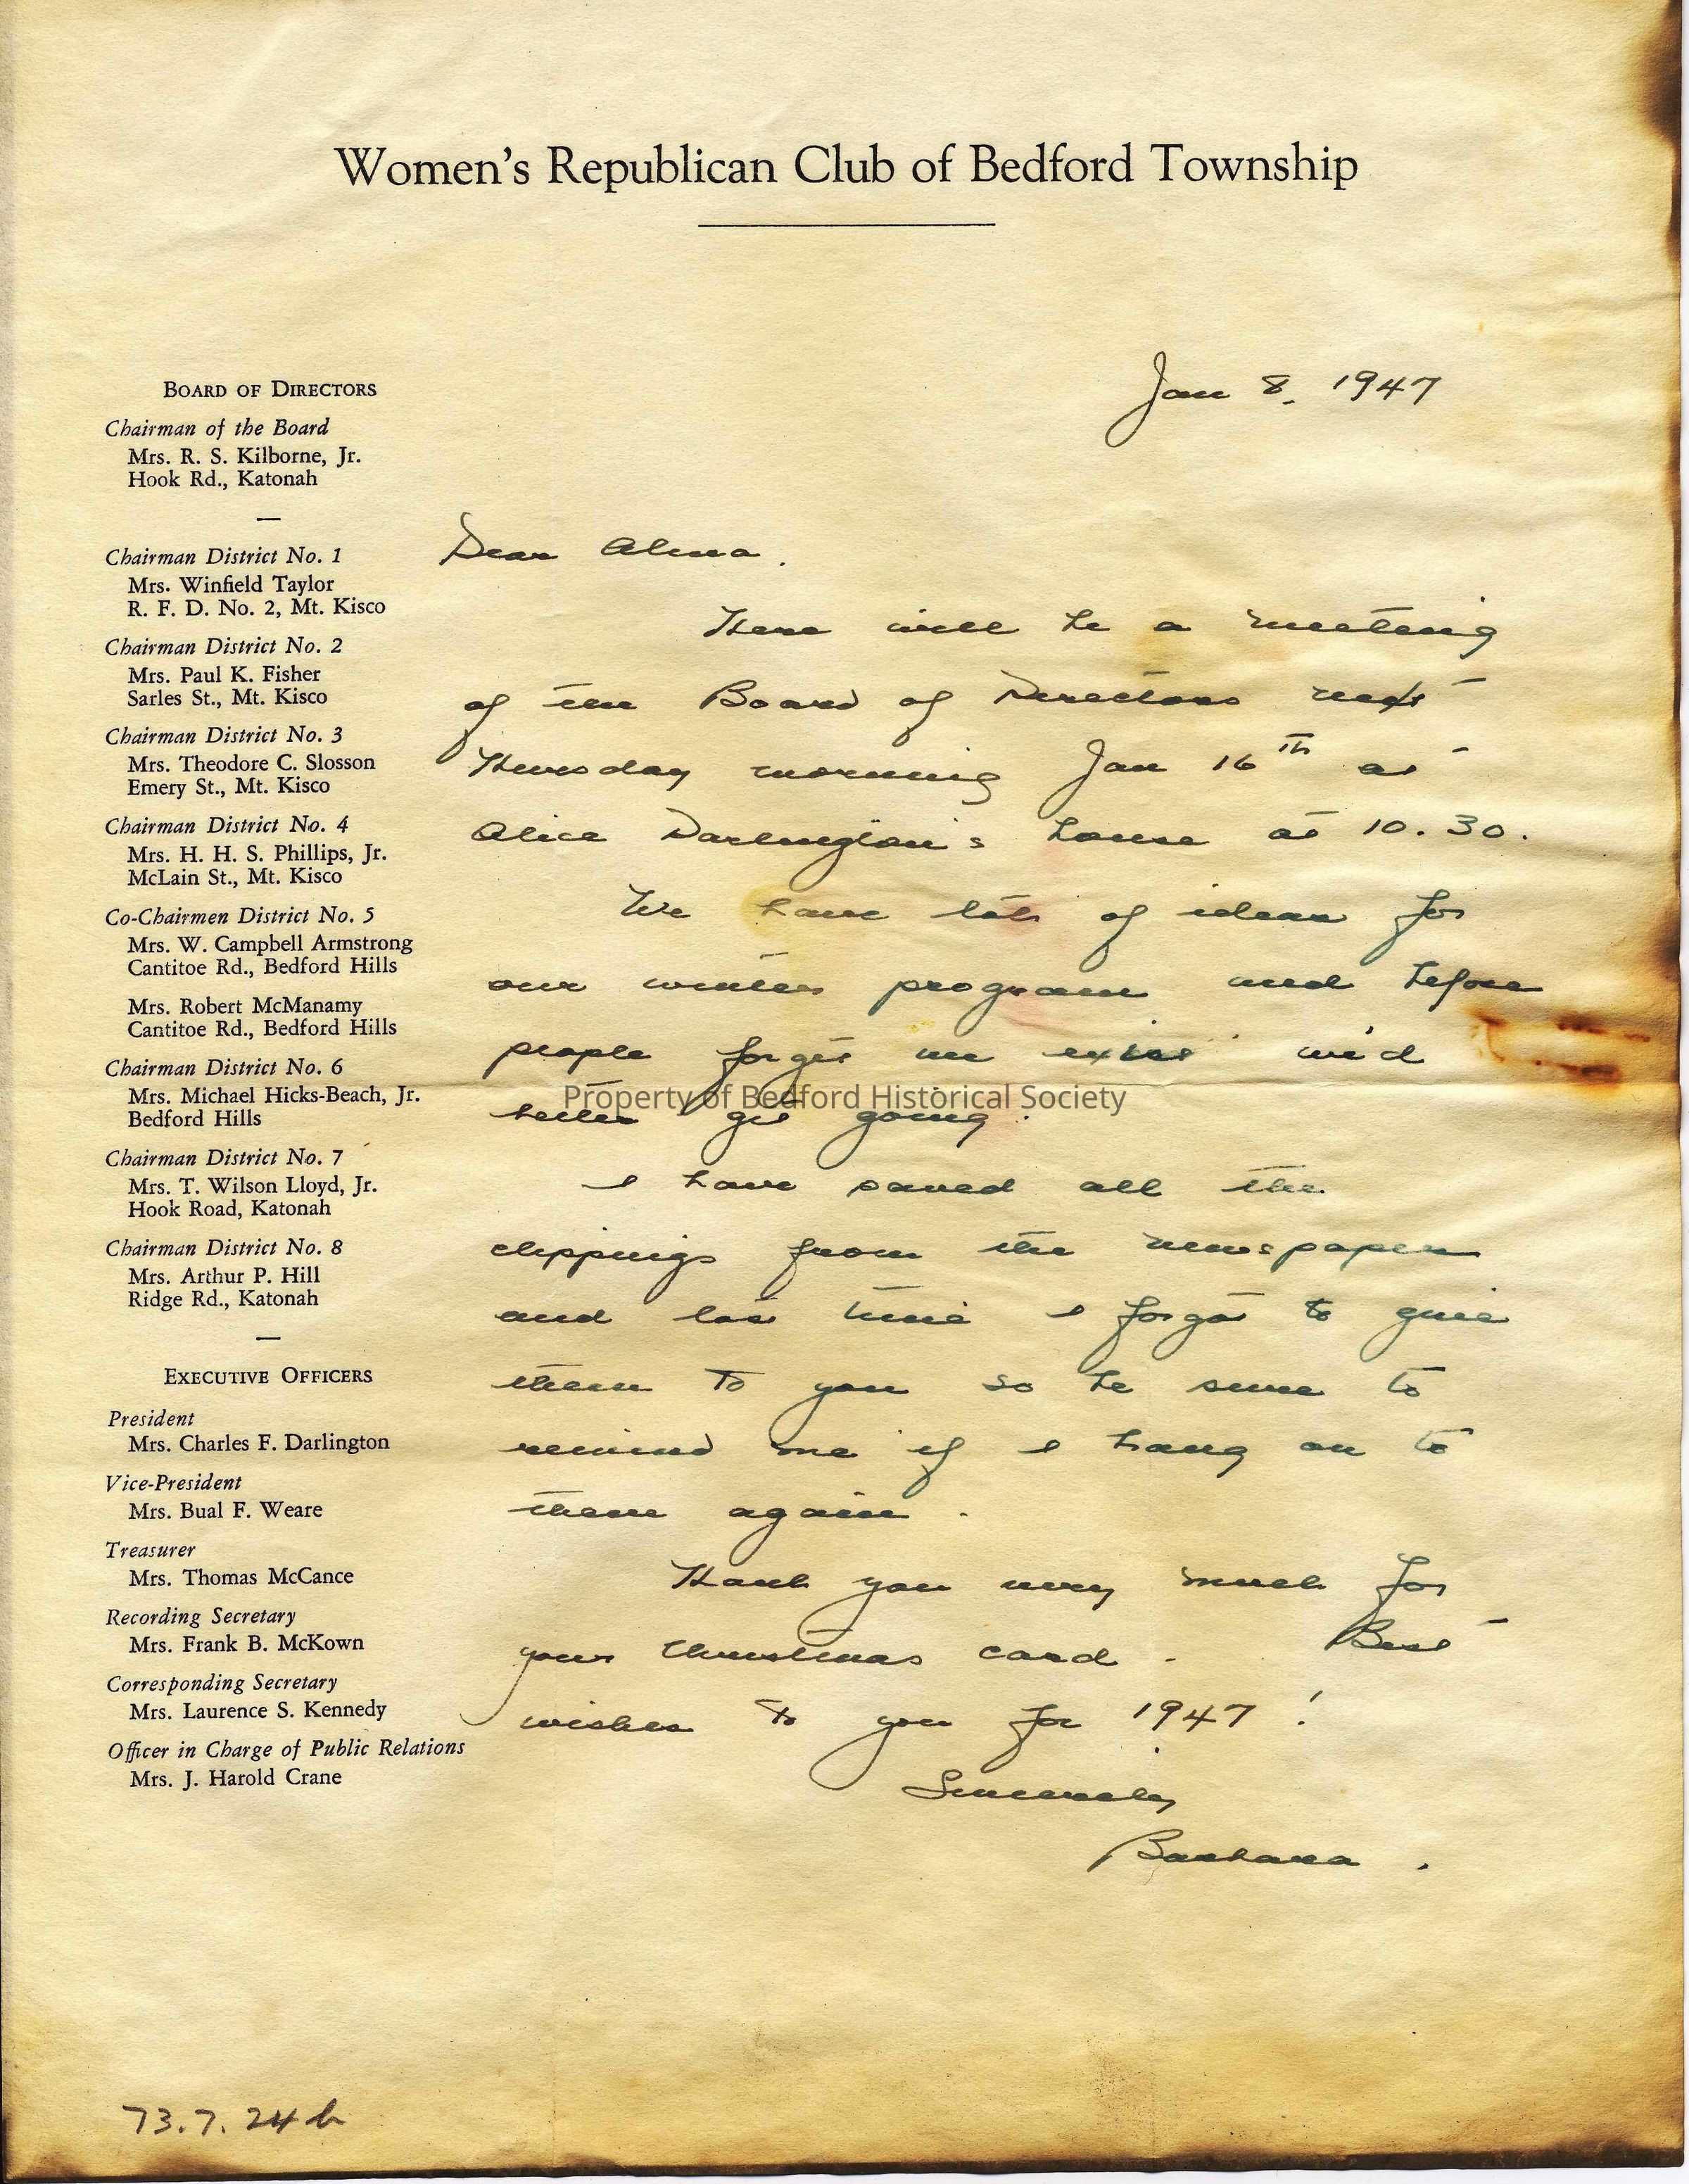 Women's Republican Club of Bedford Township
Jan 8, 1947
BOARD OF DIRECTORS
Chairman of the Board
Mrs. R. S. Kilborne, Jr.
Hook Rd., Katonah
Chairman District No. 1
Mrs. Winfield Taylor
R. F. D. No. 2, Mt. Kisco
Chairman District No. 2
Mrs. Paul K. Fisher
Sarles St., Mt. Kisco
Chairman District No. 3
Mrs. Theodore C. Slosson
Emery St., Mt. Kisco
Chairman District No. 4
Mrs. H. H. S. Phillips, Jr.
McLain St., Mt. Kisco
Co-Chairmen District No. 5
Mrs. W. Campbell Armstrong
Cantitoe Rd., Bedford Hills
Mrs. Robert McManamy
Cantitoe Rd., Bedford Hills
Chairman District No. 6
Mrs. Michael Hicks-Beach, Jr.
Bedford Hills
Chairman District No. 7
Mrs. T. Wilson Lloyd, Jr.
Hook Road, Katonah
Chairman District No. 8
Mrs. Arthur P. Hill
Ridge Rd., Katonah
EXECUTIVE OFFICERS
President
Mrs. Charles F. Darlington
Vice-President
Mrs. Bual F. Weare
Treasurer
Mrs. Thomas McCance
Recording Secretary
Mrs. Frank B. McKown
Corresponding Secretary
Mrs. Laurence S. Kennedy
Officer in Charge of Public Relations
Mrs. J. Harold Crane
Dear Alma.
There will be a meeting
of the Board of Directors next
Thursday morning Jan 16th at
Alice Darlington's house at 10.30.
We have lots of ideas for
our winter program and before
people forget we exist we'd
better get going.
Property of Bedford Historical Society
I have saved all the
clippings from the newspaper
and last time I forgot to give
them to you so be sure to
remind me if I hang on to
them again.
Thank you very much for
your Christmas card. Best
wishes to you for 1947!
Sincerely
Barbara.
73.7.24b